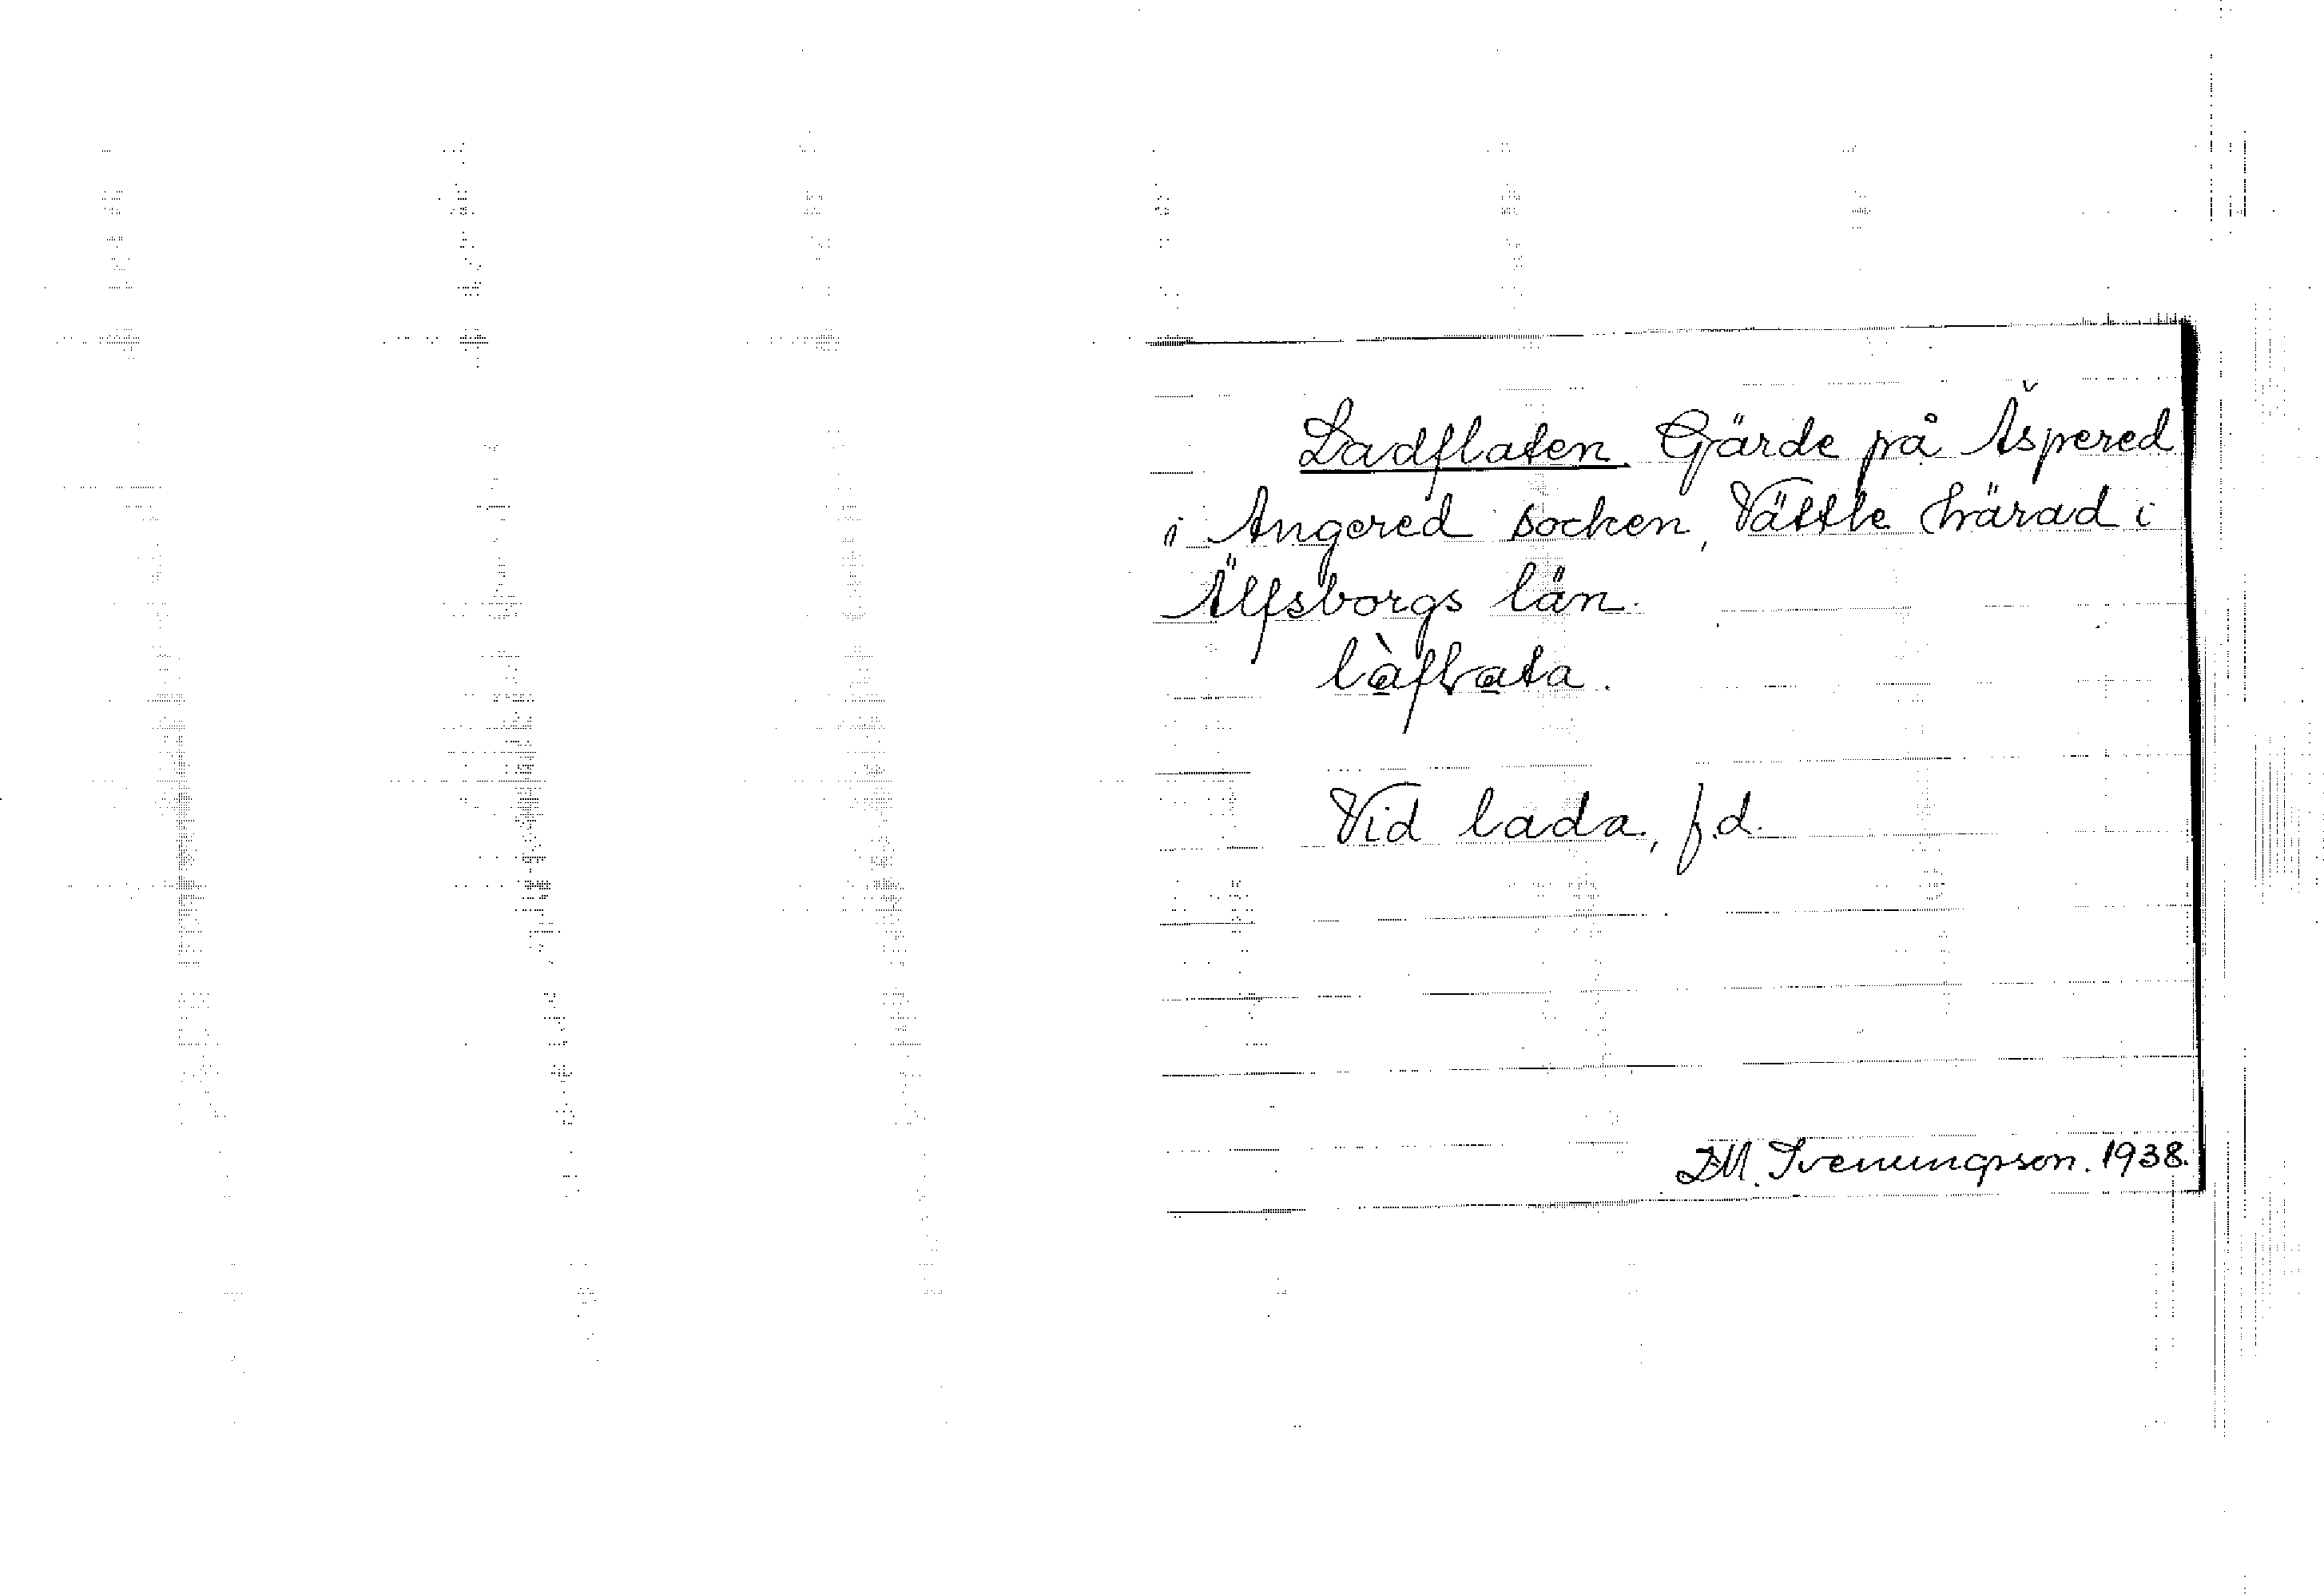 Ladflaten. Gärde på Äspered
i Angered socken, Vättle härad i
Älfsborgs län.
làflata.
Vid lada, f.d.
D.M. Sveningsson. 1938.